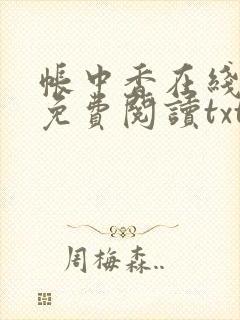 帳中香在綫
免費閱讀txt
周梅森..